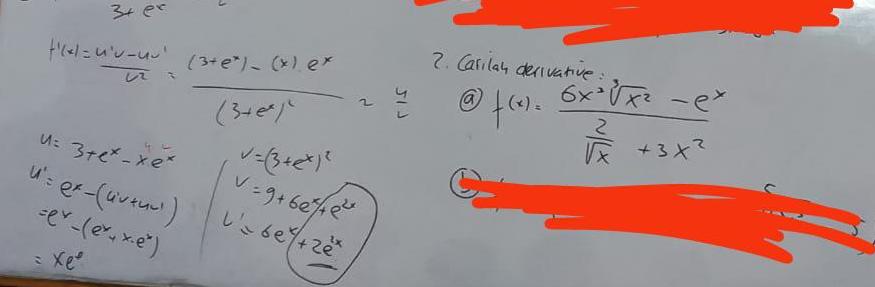 3+eˣ
f'(x) = u'v - uv' / v² = (3+eˣ) - (x) . eˣ / (3+eˣ)² = u / v
u = 3+eˣ - xeˣ
u' = eˣ - (u'v + uv')
= eˣ - (eˣ + x.eˣ)
= xeˣ
v = (3+eˣ)²
v = 9+6eˣ+e²ˣ
v' = 6eˣ + 2e²ˣ
2. Carilah derivative :
(a) f(x) = 6x³ ³√x² - eˣ / 2/√x + 3x²
(b)